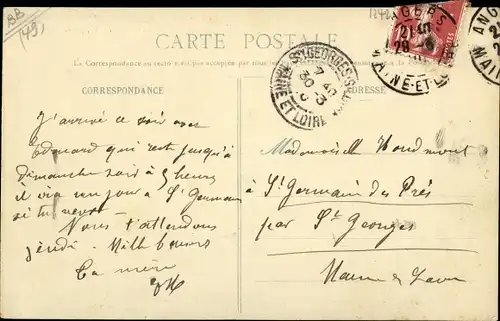 BB
(49)
CARTE POSTALE
La Correspondance au recto n'est pas acceptée par tous
CORRESPONDANCE
ADRESSE
ANGERS
MAINE-ET-LOIRE
ST GEORGES-SUR-LOIRE
MAINE-ET-LOIRE
J'arrive ce soir avec
Edouard qui reste jusqu'à
dimanche soir à 5 heures
il ira un jour à St Germain
si tu veux.
Nous t'attendons
jeudi. Mille baisers
Ta mère
Mademoiselle
à St Germain des Prés
par St Georges
Maine & Loire